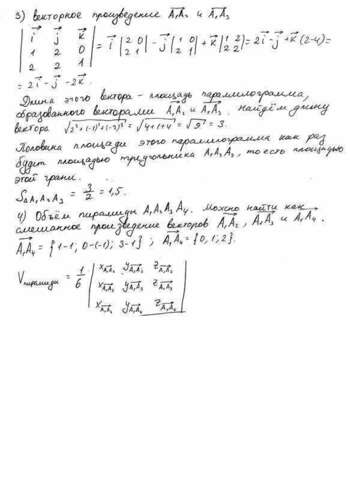 3) векторное произведение A₁A₂ и A₁A₃
| i j k |
| 1 2 0 | = i |2 0; 2 1| - j |1 0; 2 1| + k |1 2; 2 2| = 2i - j + k (2-4) =
| 2 2 1 |
= 2i - j - 2k.
Длина этого вектора - площадь параллелограмма,
образованного векторами A₁A₂ и A₁A₃. Найдём длину
вектора √(2²+(-1)²+(-2)²) = √(4+1+4) = √9 = 3.
Половина площади этого параллелограмма как раз
будет площадью треугольника A₁A₂A₃, то есть площадью
этой грани.
S△A₁A₂A₃ = 3/2 = 1,5.
4) Объём пирамиды A₁A₂A₃A₄. Можно найти как
смешанное произведение векторов A₁A₂, A₁A₃ и A₁A₄.
A₁A₄ = {1-1; 0-(-1); 3-1}; A₁A₄ = {0; 1; 2}.
| x A₁A₂ y A₁A₂ z A₁A₂ |
Vпирамиды = 1/6 | x A₁A₃ y A₁A₃ z A₁A₃ |
| x A₁A₄ y A₁A₄ z A₁A₄ |